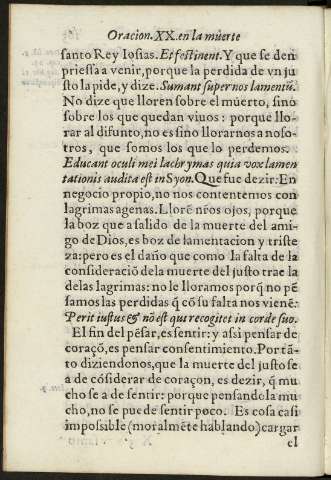 Oracion. XX. en la muerte
santo Rey Iosias. Et festinent. Y que se den
priessa a venir, porque la perdida de vn ju
sto la pide, y dize. Sumant super nos lamentũ.
No dize que lloren sobre el muerto, sino
sobre los que quedan viuos: porque llo-
rar al difunto, no es sino llorarnos a noso-
tros, que somos los que lo perdemos.
Educant oculi mei lachrymas quia vox lamen
tationis audita est in Syon. Que fue dezir: En
negocio propio, no nos contentemos con
lagrimas agenas. Llorẽ nr̃os ojos, porque
la boz que a salido de la muerte del ami-
go de Dios, es boz de lamentacion y triste
za: pero es el daño que como la falta de la
consideraciõ dela muerte del justo trae la
delas lagrimas: no le lloramos porq̃ no pẽ
samos las perdidas q̃ cõ su falta nos vienẽ.
Perit iustus & nõ est qui recogitet in corde suo.
El fin del pẽsar, es sentir: y assi pensar de
coraçõ, es pensar con sentimiento. Por tã-
to diziendonos, que la muerte del justo se
a de cõsiderar de coraçon, es dezir, q̃ mu
cho se a de sentir: porque pensandola mu
cho, no se puede sentir poco. Es cosa casi
impossible (moralmẽte hablando) cargar
el